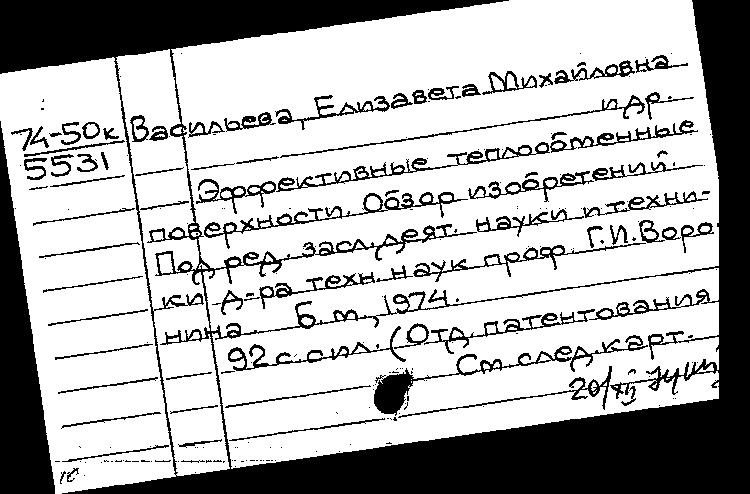 74-50к Васильева, Елизавета Михайловна
5531 и др.
Эффективные теплообменные
поверхности. Обзор изобретений.
Под ред. засл. деят. науки и техни-
ки д-ра техн. наук проф. Г.И. Воро-
нина. Б.м., 1974.
92 с. с ил. (Отд. патентования
См. след. карт.
20/XII